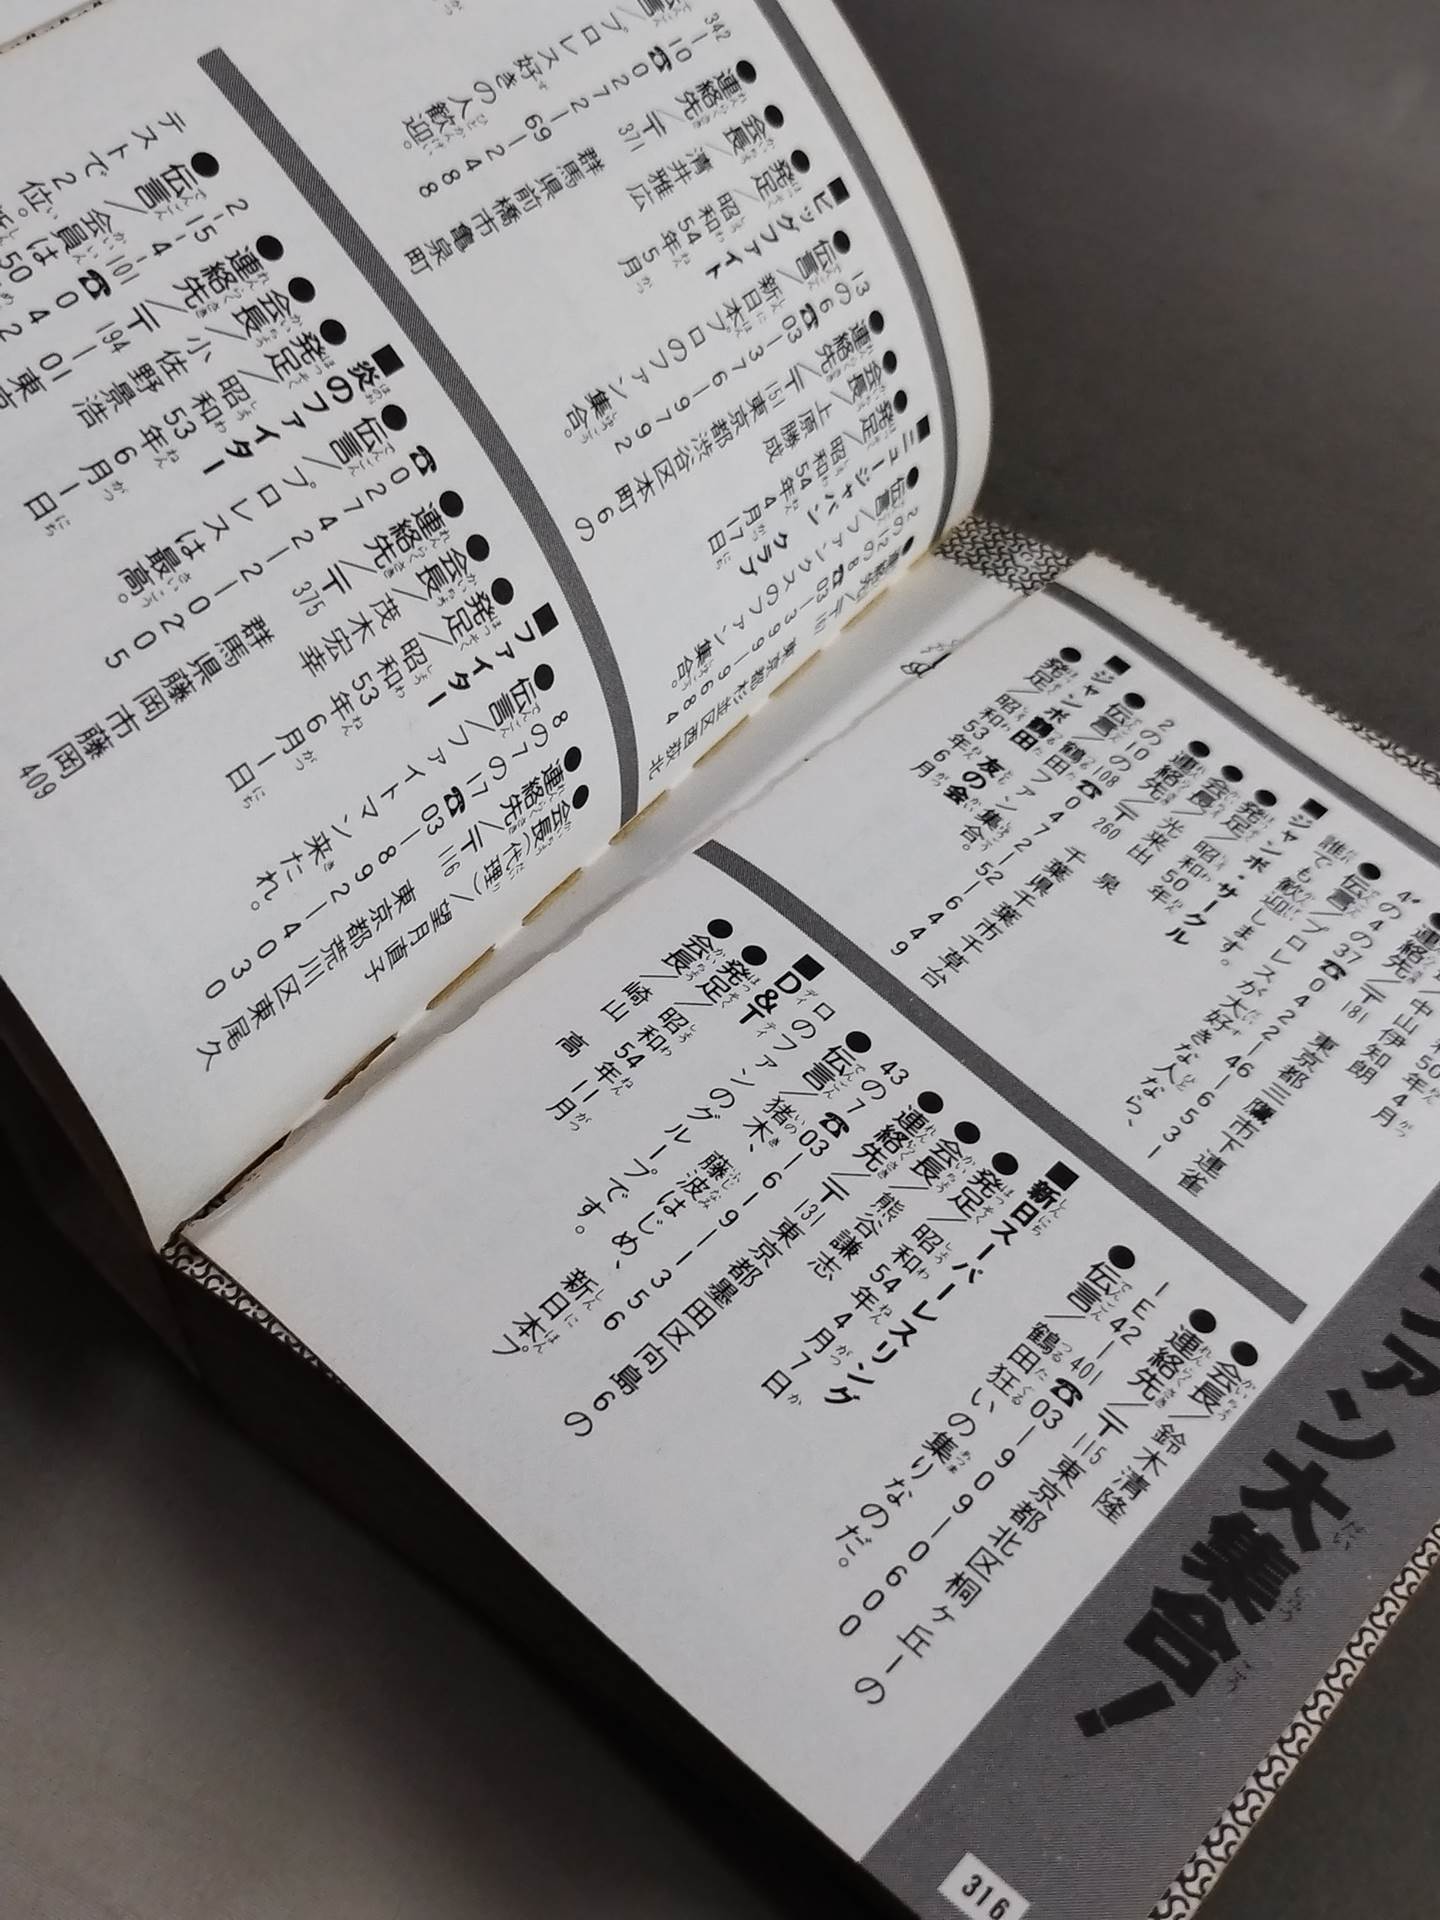 ファン大集合！
中山伊知朗
●連絡先／〒181 東京都三鷹市下連雀
4の4の37☎0422－46－6531
●伝言／プロレスが大好きな人なら、
誰でも歓迎します。
■ジャンボ・サークル
●発足／昭和50年
●会長／光来出 泉
●連絡先／〒260 千葉県千葉市千草台
2の10の108☎0472－52－6449
●伝言／鶴田ファン集合。
■ジャンボ鶴田友の会
●発足／昭和53年6月
●会長／鈴木清隆
●連絡先／〒115東京都北区桐ヶ丘1の
1E42－401☎03－909－0600
●伝言／鶴田狂いの集りなのだ。
■新日スーパーレスリング
●発足／昭和54年4月7日
●会長／熊谷謙志
●連絡先／〒131東京都墨田区向島6の
43の7☎03－6－9－－356
●伝言／猪木、藤波はじめ、新日本プ
ロのファンのグループです。
■D&T
●発足／昭和54年1月
●会長／崎山 高
316
●連絡先／〒167 東京都杉並区西荻北
5の12の8☎03－399－9684
●伝言／ファンクスのファン集合。
■ニュージャパンクラブ
●発足／昭和54年4月17日
●会長／上原勝成
●連絡先／〒151東京都渋谷区本町6の
13の6☎03－376－9792
●伝言／新日本プロのファン集合。
■ビッグファイト
●発足／昭和54年5月
●会長／井雅広
●連絡先／〒371 群馬県前橋市亀泉町
342－10☎0272－69－2488
伝言／プロレス好きの人歓迎。
●会長（代理）／望月直子
●連絡先／〒116 東京都荒川区東尾久
8の7の17☎03－892－4030
●伝言／ファイトマン来たれ。
■ファイター
●発足／昭和53年6月1日
●会長／茂木宏幸
●連絡先／〒375 群馬県藤岡市藤岡409
☎02742－2－0205
●伝言／プロレスは最高。
■炎のファイター
●発足／昭和53年6月1日
●会長／小佐野景浩
●連絡先／〒194
2－15－4－101☎042
●伝言／会員は50
テストで2位。